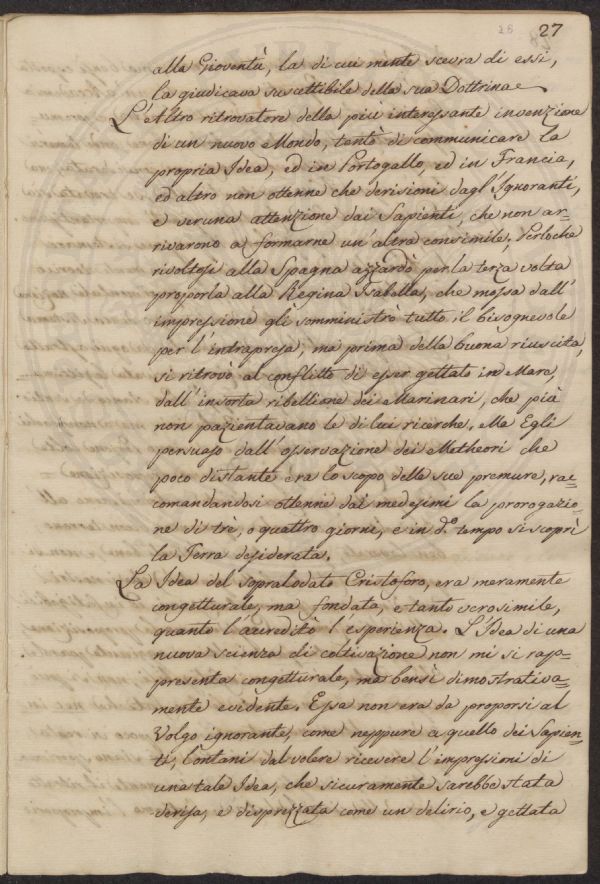 28 27
alla Gioventù, la di cui mente scevra di essi,
la giudicava suscettibile della sua Dottrina.
L'Altro ritrovatore della più interessante invenzione
di un nuovo Mondo, tentò di communicare la
propria Idea, ed in Portogallo, ed in Francia,
ed altro non ottenne che derisioni dagl'Ignoranti,
e veruna attenzione dai Sapienti, che non ar-
rivarono a formarne un'altra consimile. Perloche
rivoltosi alla Spagna azzardò per la terza volta
proporla alla Regina Isabella, che mossa dall'
impressione gli somministrò tutto il bisognevole
per l'intrapresa, ma prima della buona riuscita,
si ritrovò al conflitto di esser gettato in Mare,
dall'insorta ribellione dei Marinari, che più
non pazientavano le di lui ricerche. Ma Egli
persuaso dall'osservazione dei Metheori che
poco distante era lo scopo delle sue premure, rac-
comandandosi ottenne dai medesimi la prorogazio-
ne di trè, o quattro giorni, e in d.o tempo si scoprì
la Terra desiderata.
La Idea del sopralodato Cristoforo, era meramente
congetturale, ma fondata, e tanto verosimile,
quanto l'accreditò l'esperienza. L'Idea di una
nuova scienza di coltivazione non mi si rap-
presenta congetturale, ma bensì dimostrativa-
mente evidente. Essa non era da proporsi al
Volgo ignorante, come neppure a quello dei Sapien-
ti, lontani dal volere ricevere l'impressioni di
una tale Idea, che sicuramente sarebbe stata
derisa, e disprezzata come un delirio, e gettata